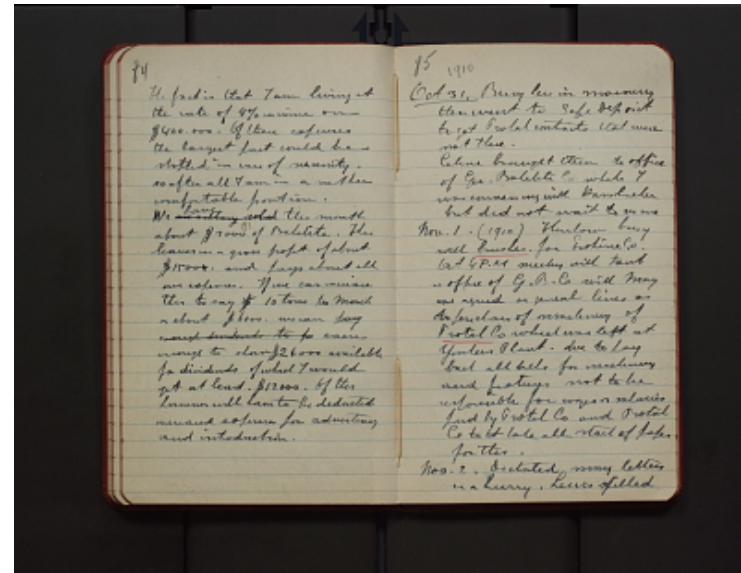 84
The fact is that I am living at
the rate of 4% income on
$400.000. Of these expenses
the largest part could be
stopped in case of necessity.
so after all I am in a rather
comfortable position.
We have sold this month
about $7000 of Bakelite. This
leaves a gross profit of about
and pays about all
our expenses. If we can increase
this to say 10 tons per Month
or about we can pay
enough dividends to
enough to show $26000 available
for dividends of which I would
get at least $12000. Of this
however will have to be deducted
increased expenses for advertising
and introduction.
85
1910
Oct 31. Busy in morning
then went to Safe Deposit
to get Protal contracts that were
not there.
Celine brought them to office
of Gen. Bakelite Co while I
was conversing with
but did not wait to see me
Nov. 1. (1910) Thurlow busy
with for Co.
At 4 P.M meeting with
office of G. B. Co with May
we agreed in general lines as
to purchase of machinery of
Protal Co which was left at
Yonkers Plant. due to pay
back all bills for machinery
and fixtures not to be
responsible for wages or salaries
paid by Protal Co and Protal
Co to take all start of
for this.
Nov. 2. Dictated many letters
in a hurry.